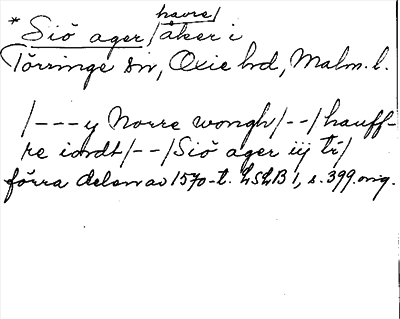 havre/
* Siö ager / åker i
Törringe sn, Oxie hd, Malm. l.
/---y Norre wongh/--/hauff-
re iordt/--/Siö ager iij tr/
förra delen av 1570-t. LSLB 1, s. 399. orig.